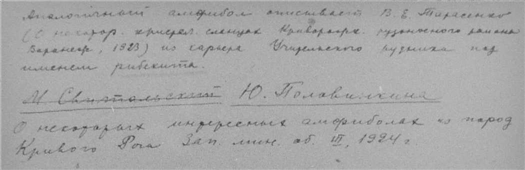 Аналогичный амфибол описывает В. Е. Тарасенко
(О некотор. кристал. сланцах Криворожск. рудоносного района
1923) из карьера рудника под
именем рибекита.
И. Свитальский Ю. Половинкина
О некоторых интересных амфиболах из пород
Кривого Рога Зап. мин. об. III, 1924 г